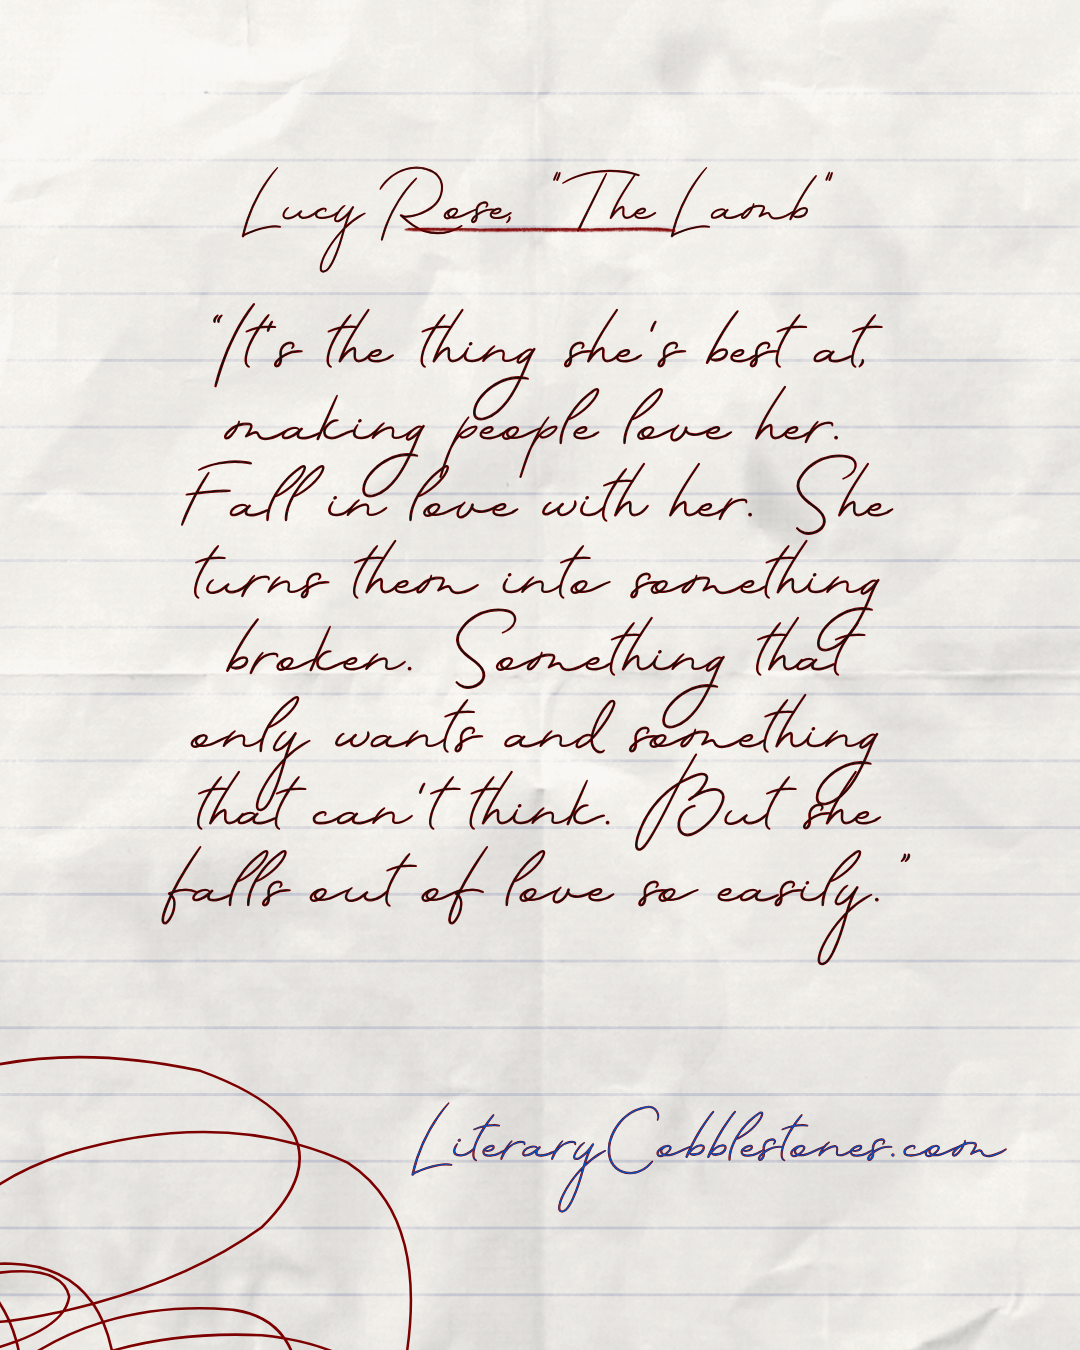 Lucy Rose, "The Lamb"
"It's the thing she's best at,
making people love her.
Fall in love with her. She
turns them into something
broken. Something that
only wants and something
that can't think. But she
falls out of love so easily."
LiteraryCobblestones.com